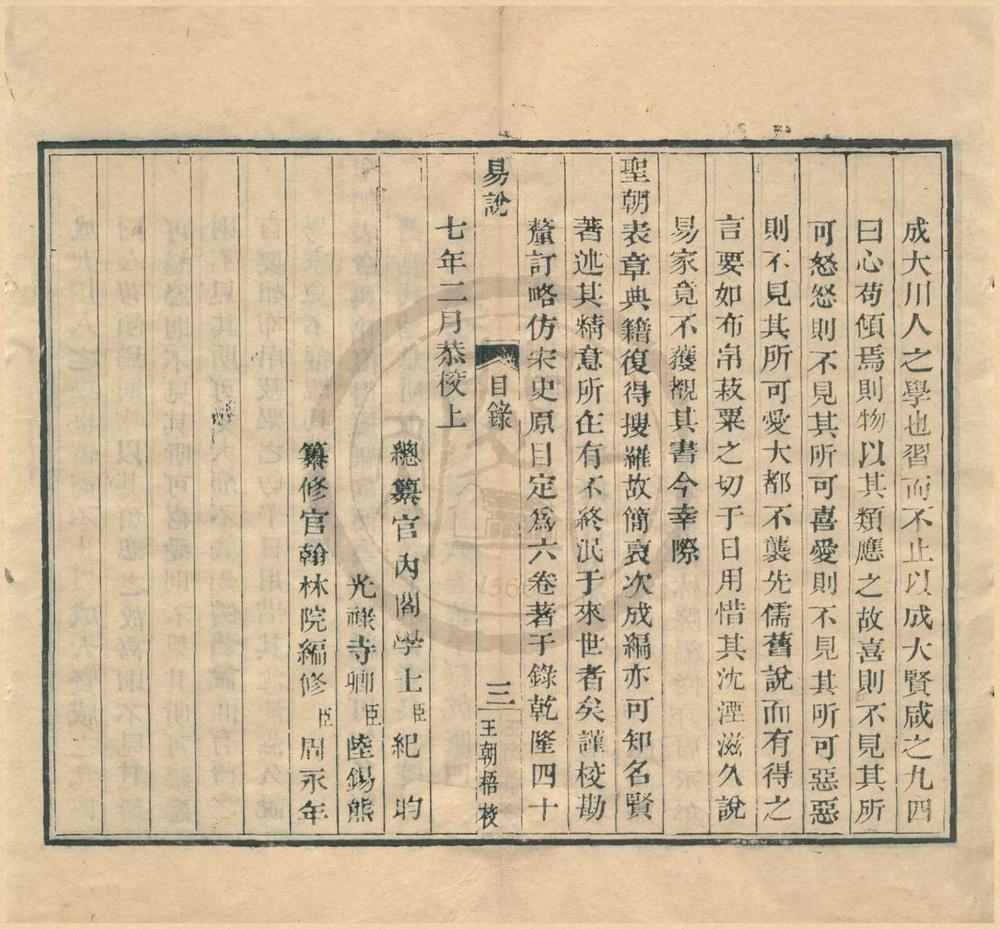 成大川人之學也習而不止以成大賢咸之九四
曰心苟傾焉則物以其類應之故喜則不見其所
可怒怒則不見其所可喜愛則不見其所可惡惡
則不見其所可愛大都不襲先儒舊說而有得之
言要如布帛菽粟之切于日用惜其沈湮滋久說
易家竟不獲覩其書今幸際
聖朝表章典籍復得搜羅故簡裒次成編亦可知名賢
著述其精意所在有不終泯于來世者矣謹校勘
釐訂略仿宋史原目定爲六卷著于錄乾隆四十
易說 目錄 三 王朝梧校
七年二月恭校上
總纂官內閣學士臣紀昀
光祿寺卿臣陸錫熊
纂修官翰林院編修臣周永年